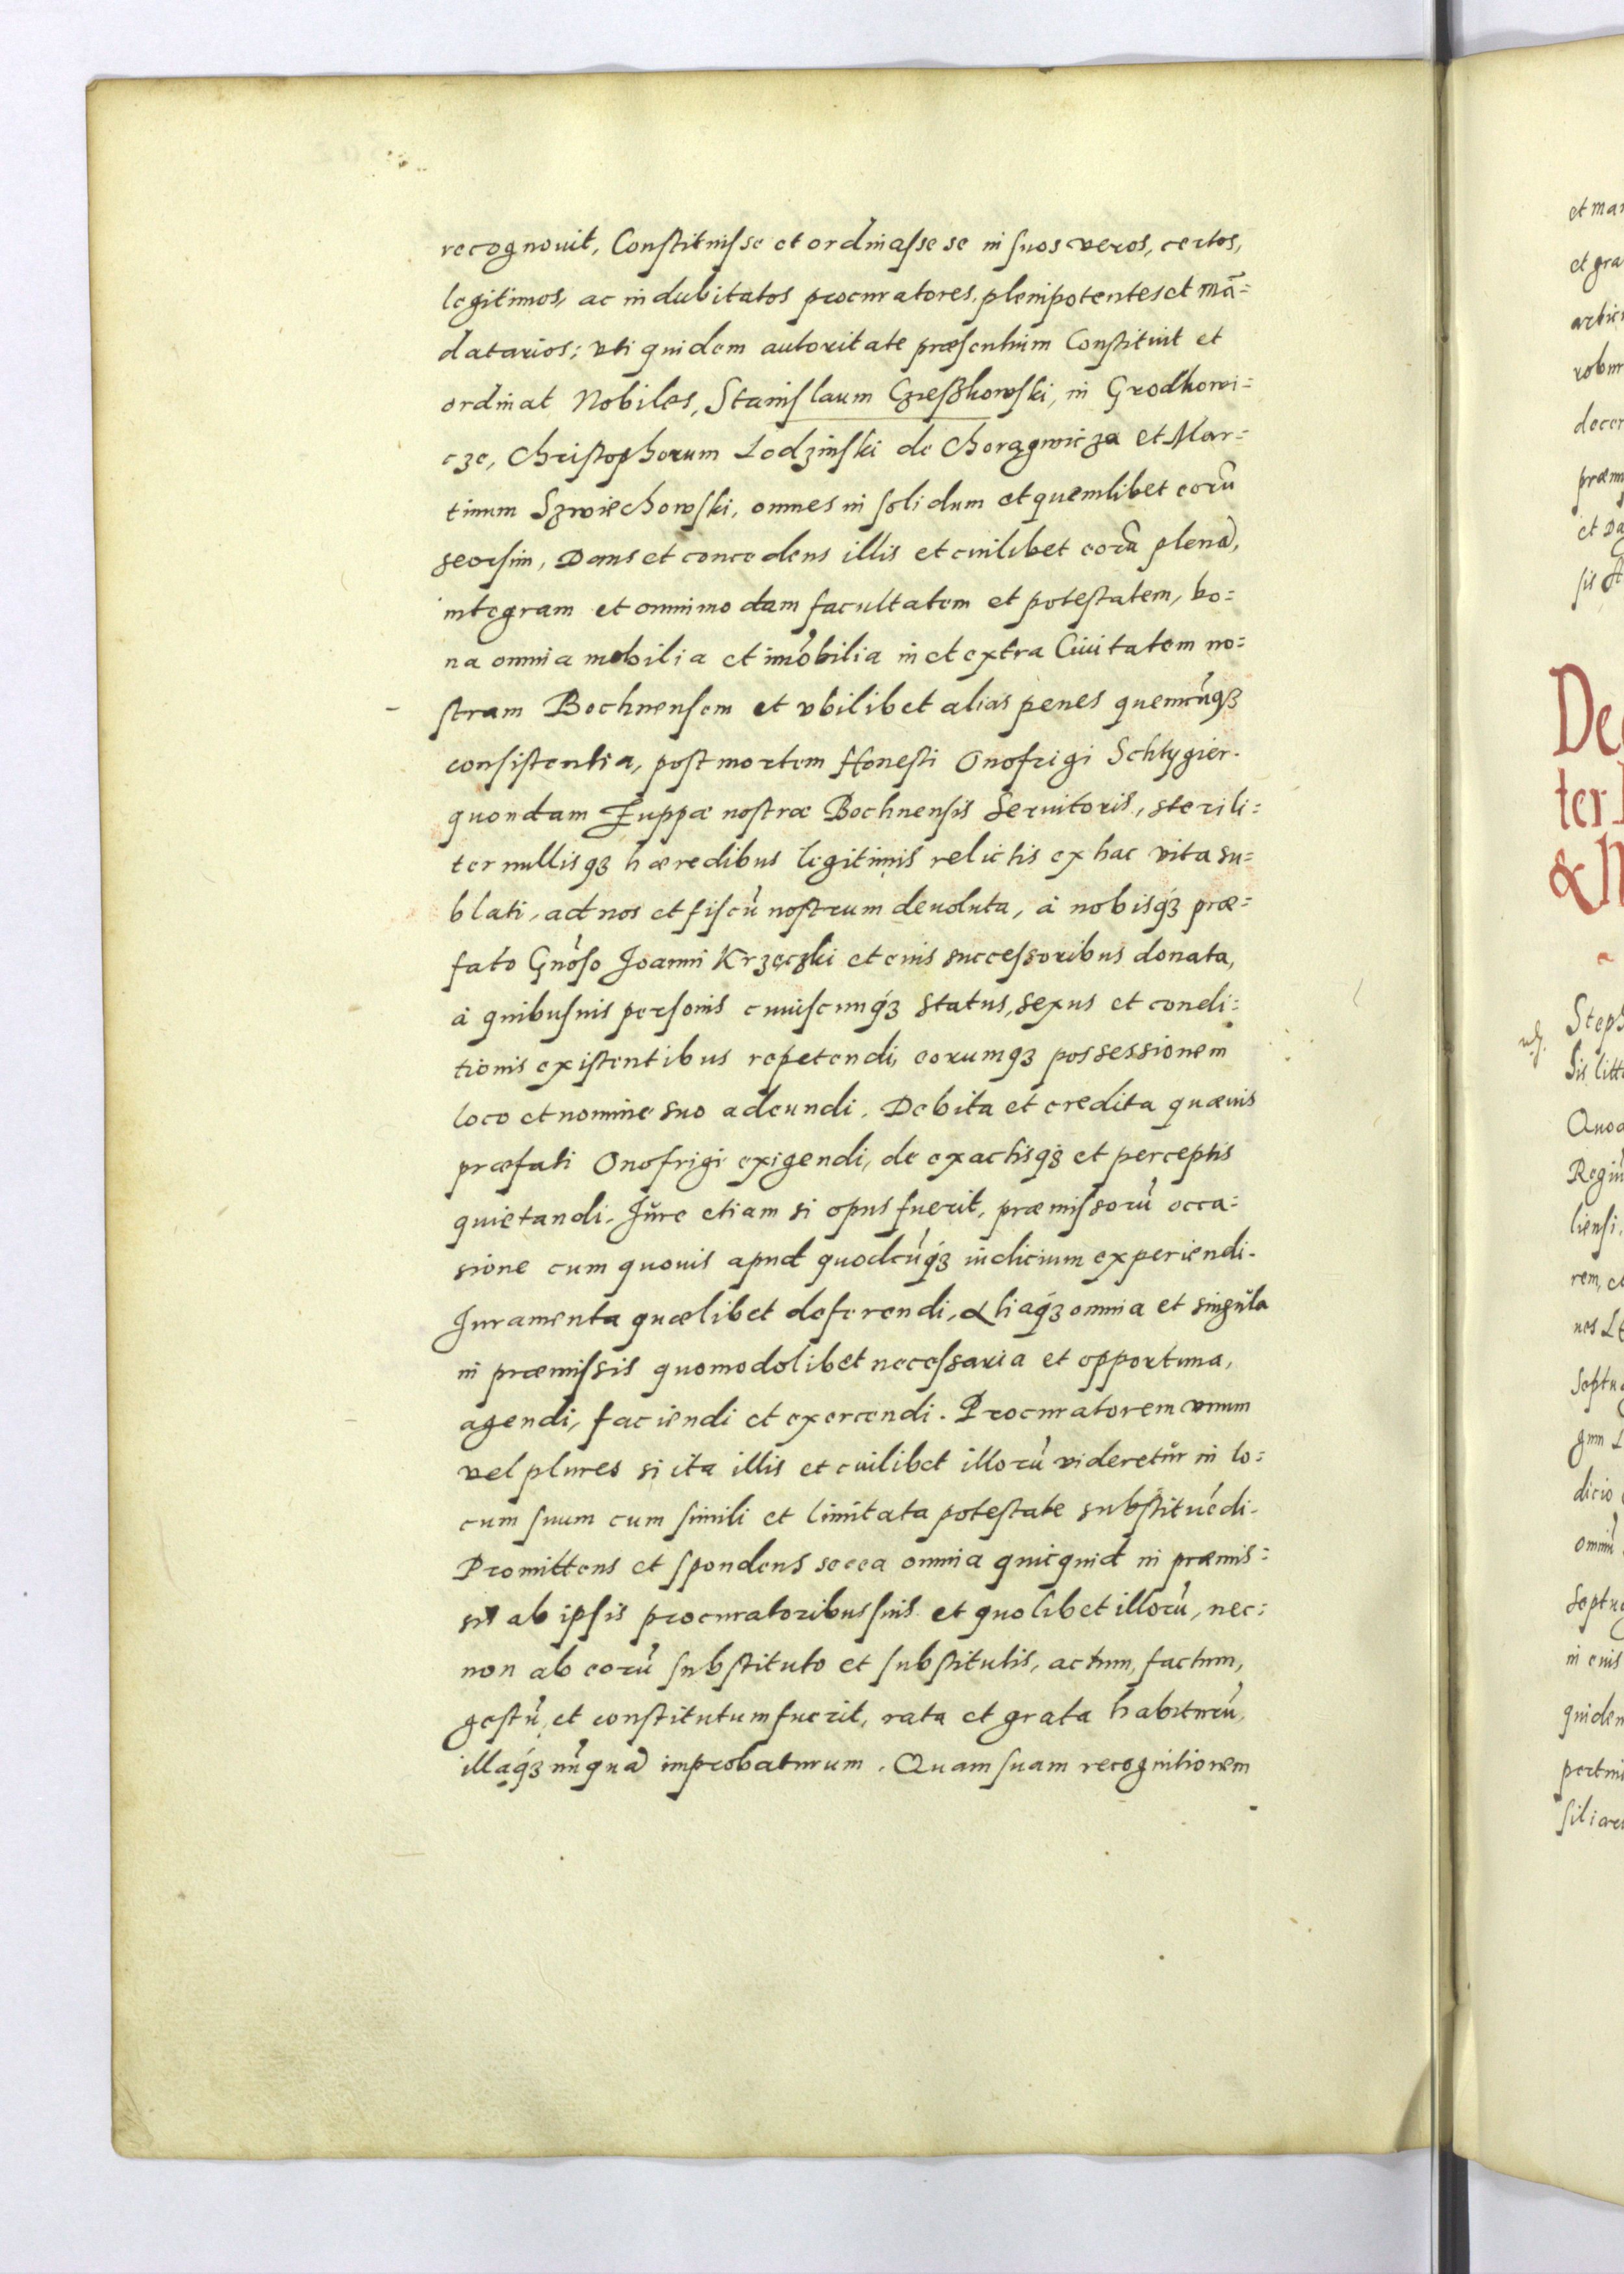 recognouit, Constituisse et ordinasse se in suos veros, certos,
legitimos, ac indubitatos procuratores, plenipotentes et mā=
datarios: vti quidem autoritate præsentium Constituit et
ordinat Nobiles, Stanislaum Czeszkowski, in Grodkowi=
cze, Christophorum Lodzinski de Chorągwicza et Mar=
tinum Szwiechowski, omnes in solidum et quemlibet eorū
seorsim, Dans et concedens illis et cuilibet eorū plenā,
integram et omnimodam facultatem et potestatem, bo=
na omnia mobilia et imōbilia in et extra Ciuitatem no=
stram Bochnensem et vbilibet alias penes quemcūqȝ
consistentia, post mortem Honesti Onofrigi Schtygier.
quondam Zuppæ nostræ Bochnensis Seruitoris, sterili=
ter nullisqȝ hæredibus legitimis relictis ex hac vita su=
blati, ad nos et fiscū nostrum deuoluta, à nobisqȝ præ=
fato Gnōso Joanni Krzęczki et eius successoribus donata,
à quibusuis personis cuiuscunqȝ status, sexus et condi=
tionis existentibus repetendi, eorumqȝ possessionem
loco et nomine suo adeundi. Debita et credita quæuis
præfati Onofrigi exigendi, de exactisqȝ et perceptis
quietandi. Jŭre etiam si opus fuerit, præmissorū occa=
sione cum quouis apud quodcūqȝ iudicium experiendi.
Juramenta quælibet deferendi, aliaqȝ omnia et singŭla
in præmissis quomodolibet necessaria et opportuna,
agendi, faciendi et exercendi. Procuratorem vnum
vel plures si ita illis et cuilibet illorū videretŭr in lo=
cum suum cum simili et limitata potestate substituēdi.
Promittens et spondens se ea omnia quicquid in præmis=
sis ab ipsis procuratoribus suis et quolibet illorū, nec=
non ab eorū substituto et substitutis, actum, factum,
gestū, et constitutum fuerit, rata et grata habiturū,
illaqȝ nūquā improbaturum. Quam suam recognitionem
et mar
et gra
robur
decer
præm
et Da
sis
De
ter
&
Steph
Sis litte
Quod
Regiū
liensi,
rem, et
nes
Septu
gnu
dicio
omniū
septu
in eius
quidem
pertin